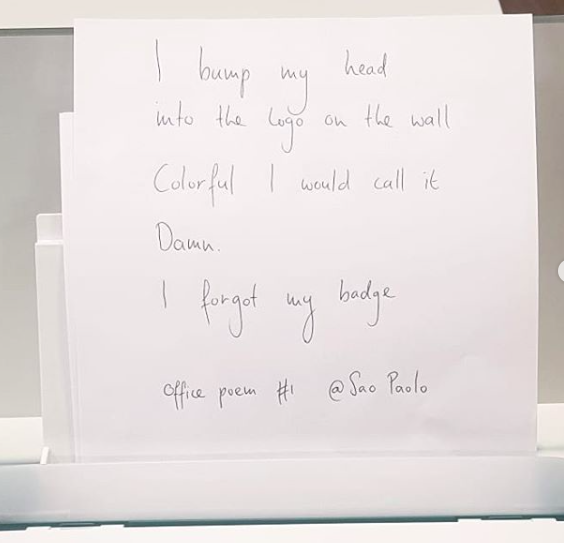 I bump my head
into the logo on the wall
Colorful I would call it
Damn.
I forgot my badge
Office poem #1 @Sao Paolo